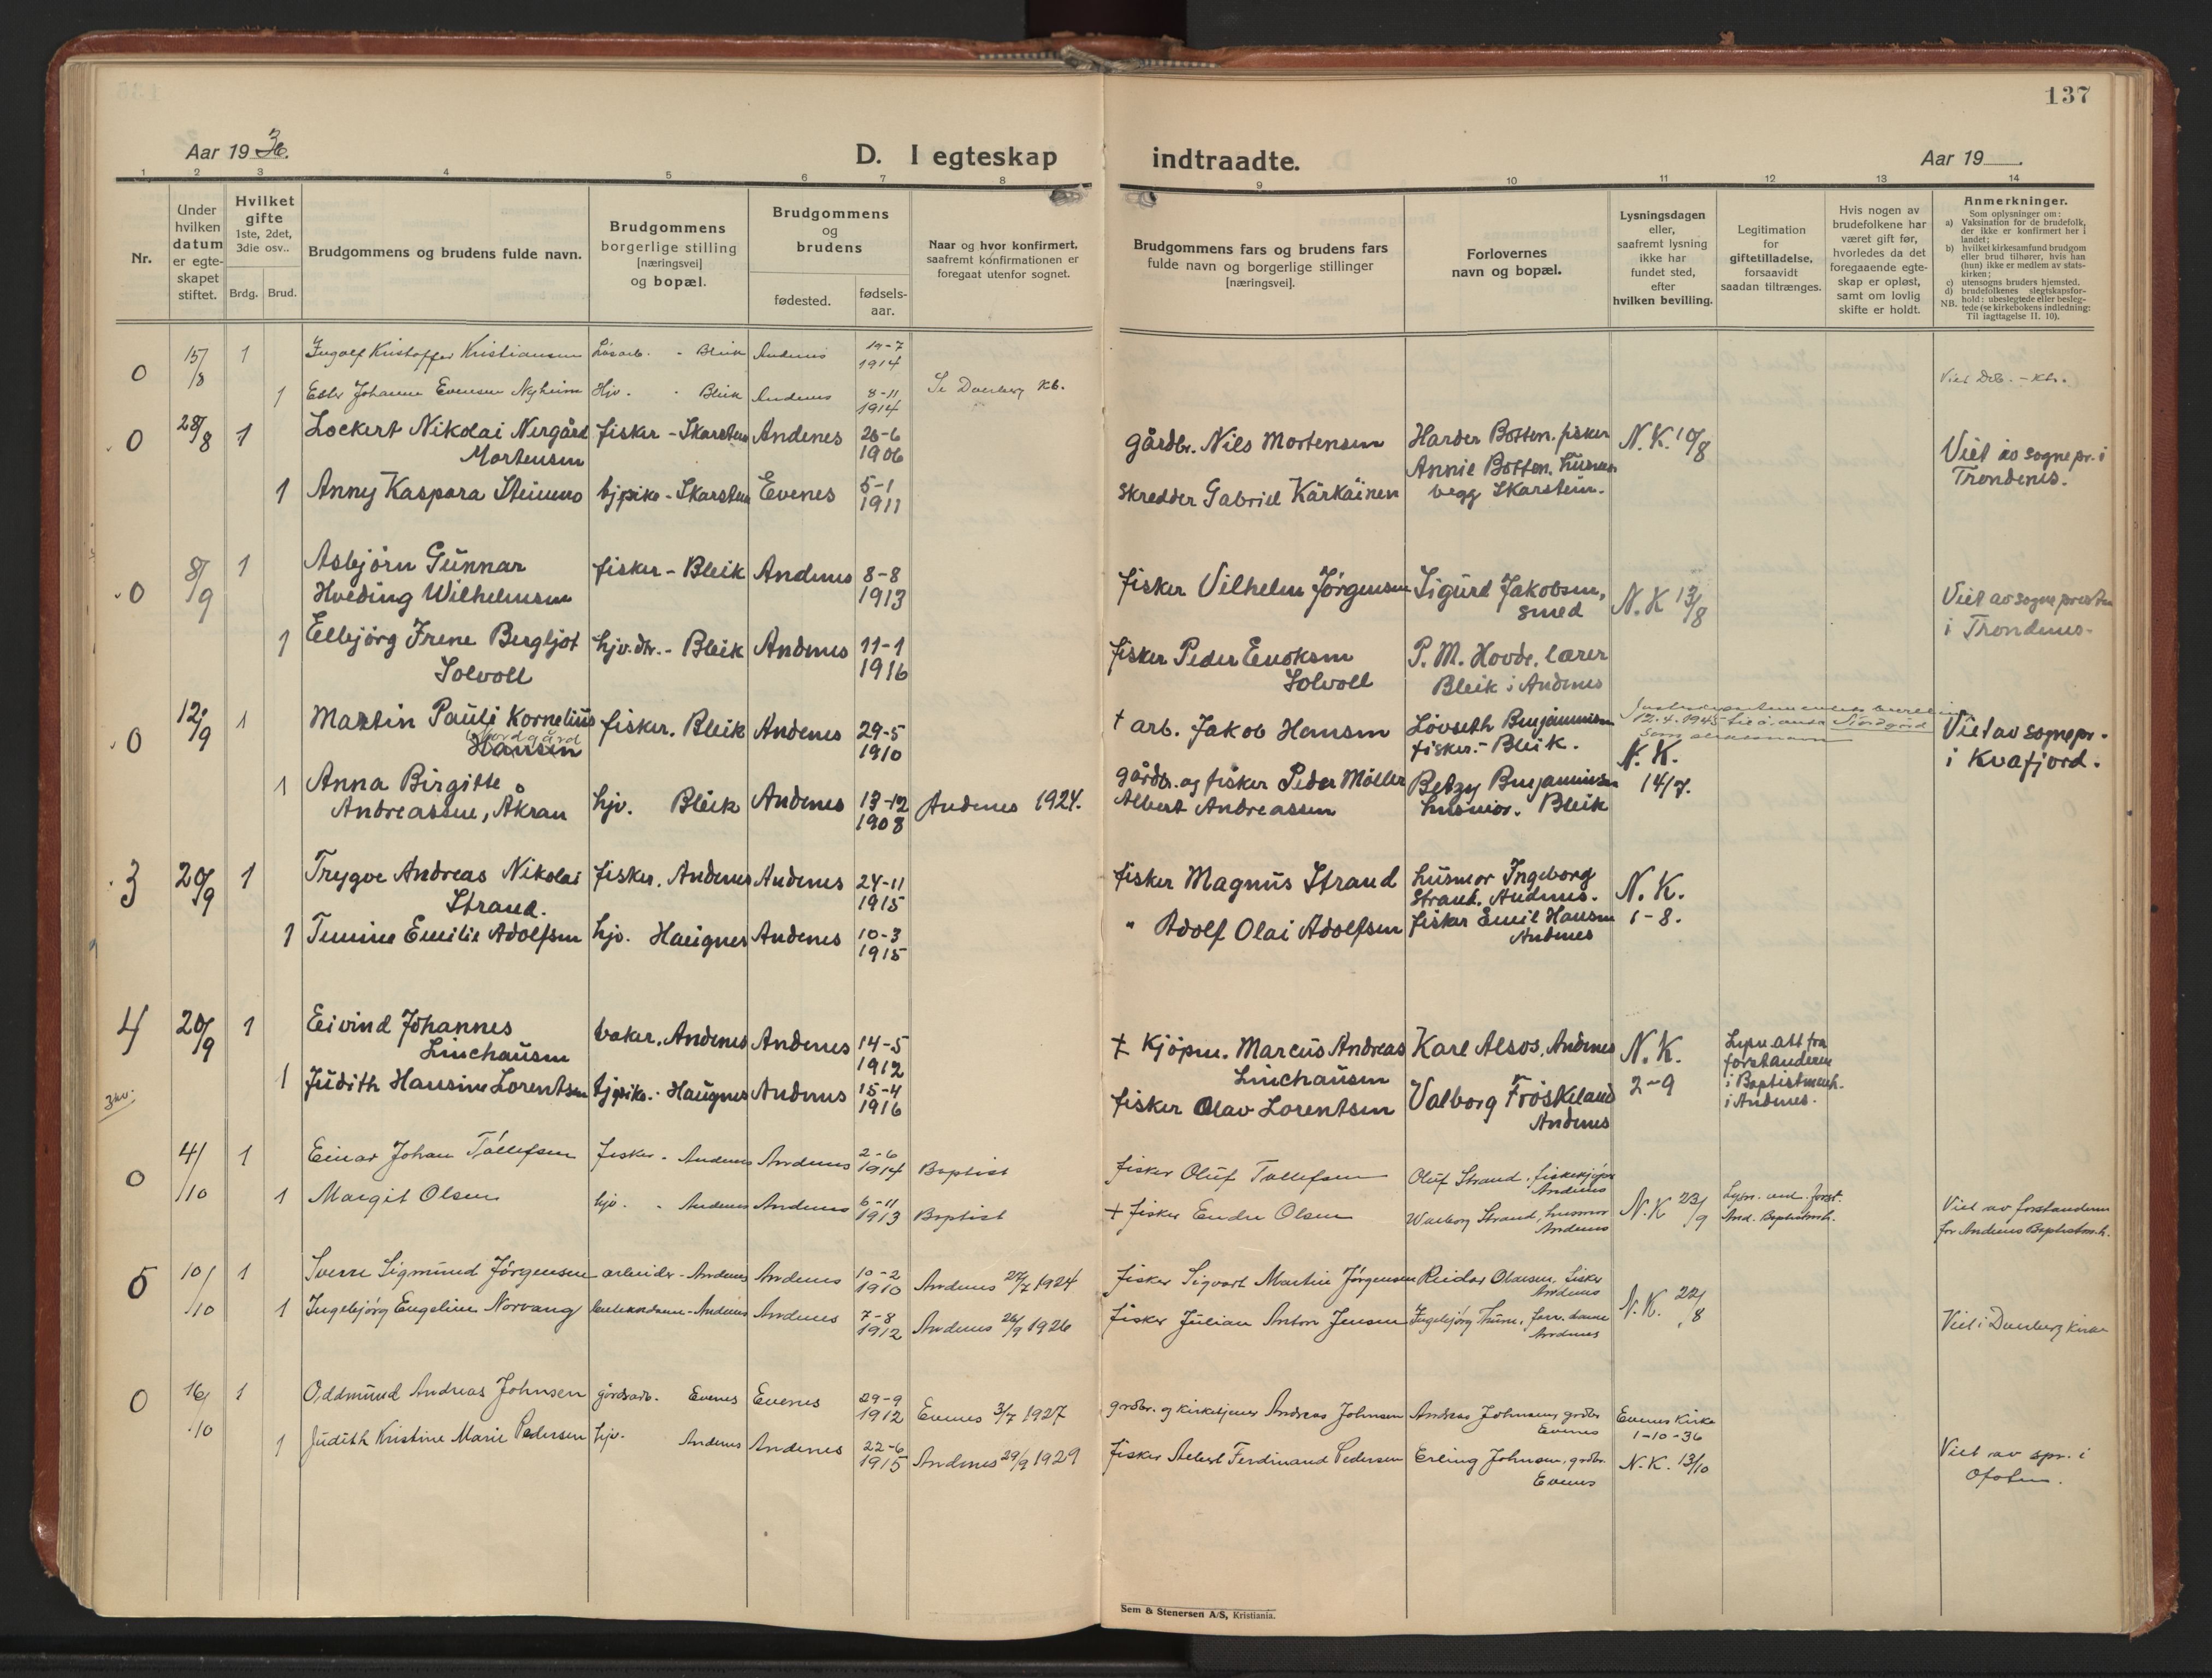 137
Aar 19 36.
D. I egteskap
indtraadte.
Aar 19
1 2 3 4 5 6 7 8 9 10 11 12 13 14
Nr.
Under
hvilken
datum
er egte-
skapet
stiftet.
Hvilket
gifte
1ste, 2det,
3die osv..
Brdg. Brud.
Brudgommens og brudens fulde navn.
Brudgommens
borgerlige stilling
[næringsvei]
og bopæl.
Brudgommens
og
brudens
fødested.
fødsels-
aar.
Naar og hvor konfirmert,
saafremt konfirmationen er
foregaat utenfor sognet.
Brudgommens fars og brudens fars
fulde navn og borgerlige stillinger
[næringsvei].
Forlovernes
navn og bopæl.
Lysningsdagen
eller,
saafremt lysning
ikke har
fundet sted,
efter
hvilken bevilling.
Legitimation
for
giftetilladelse,
forsaavidt
saadan tiltrænges.
Hvis nogen av
brudefolkene har
været gift før,
hvorledes da det
foregaaende egte-
skap er opløst,
samt om lovlig
skifte er holdt.
Anmerkninger.
Som oplysninger om:
a) Vaksination for de brudefolk,
der ikke er konfirmert her i
landet;
b) hvilket kirkesamfund brudgom
eller brud tilhører, hvis han
(hun) ikke er medlem av stats-
kirken;
c) utensogns bruders hjemsted.
d) brudefolkenes slegtskapsfor-
NB. hold: ubeslegtede eller besleg-
tede (se kirkebokens indledning:
Til iagttagelse II. 10).
0 15/8 1 Ingolf Kristoffer Kristiansen Løsarb. - Bleik Andenes
1914
1 Johanne Evensen Nyheim Hjv. - Bleik Andenes 8-11
1914
Se Dverberg Kb.
0 28/8 1 Lockert Nikolai Nergård fisker - Skarstein Andenes 26-6
Mortensen 1906
gårdbr. Nils Mortensen Harder Botten. fisker N.K. 10/8
Annie Botten. husmor
Viet av sognepr. i
Trondenes.
1 Anny Kaspara Steinmo tjpike - Skarstein Evenes 5-1
1911
skredder Gabriel Kärkäinen begg Skarstein.
0 8/9 1 Asbjörn Gunnar fisker - Bleik Andenes 8-8
Hveding Wilhelmsen 1913
fisker Vilhelm Jörgensen Sigurd Jakobsen,
smed N.K 13/8
Viet av sognepresten
i Trondenes.
1 Ellbjörg Irene Bergljot hjv. dtr. - Bleik Andenes 11-1
Solvoll 1916
fisker Peder Enoksen P. M. Hovde, lærer
Solvoll Bleik i Andenes
0 12/9 1 Martin Pauli Kornelius fisker. Bleik Andenes 29-5
Nordgård
Hansen 1910
† arb. Jakob Hansen Lövseth Benjaminsen
fisker - Bleik.
12.4.1945 Nordgård
N.K.
14/7.
Viet av sognepr.
i Kvæfjord.
1 Anna Birgitte
Andreassen, Åkran hjv. Bleik Andenes 13-12
1908
Andenes 1924.
gårdbr. og fisker Peder Möller Betzy Benjaminsen
Albert Andreassen husmor. Bleik
3 20/9 1 Trygve Andreas Nikolai fisker. Andenes Andenes 24-11
Strand. 1915
fisker Magnus Strand husmor Ingeborg
Strand. Andenes. N.K.
1-8.
1 Emilie Adolfsen hjv. Haugnes Andenes 10-3
1915
" Adolf Olai Adolfsen fisker Emil Hansen
Andenes
4 20/9 1 Eivind Johannes baker. Andenes Andenes 14-5
Linchausen 1912
† Kjöpm. Marcus Andreas Karl Alsos, Andenes N.K.
Linchausen 2-9
Lysn. att fra
forstanderen
i Baptistmenh.
i Andenes.
1 Judith Hansine Lorentsen tjpike. Haugnes Andenes 15-4
1916
fisker Olav Lorentsen Valborg Fröskeland
Andenes
0 4/10 1 Einar Johan Tollefsen fisker - Andenes Andenes 2-6
1914 Baptist
fisker Oluf Tollefsen Oluf Strand, fiskekjöper
Andenes
N.K 23/9
Lysn. ved forst.
And. Baptistmh.
1 Margit Olsen hjv. - Andenes Andenes 6-11
1913 Baptist
† fisker Endre Olsen Walborg Strand, husmor
Andenes
Viet av forstanderen
for Andenes Baptistm.h.
5 10/10 1 Sverre Sigmund Jörgensen arbeider - Andenes Andenes 10-2
1910 Andenes 27/7 1924
fisker Sigvart Martin Jörgensen Reidar Olaisen, fisker
Andenes
N.K. 22/8
1 Ingebjörg Engeline Norvang - Andenes Andenes 7-8
1912 Andenes 26/9 1926
fisker Julian Anton Jensen Ingebjörg Thune,
Andenes
Viet i Dverberg kirke
0 16/10 1 Oddmund Andreas Johnsen gårdsarb. Evenes Evenes 29-9
1912 Evenes 3/7 1927
grdbr. og kirketjener Andreas Johnsen Andreas Johnsen, grdbr
Evenes
Evenes Kirke
1-10-36
1 Judith Kristine Marie Pedersen hjv. Andenes Andenes 22-6
1915 Andenes 29/9 1929
fisker Albert Ferdinand Pedersen Erling Johnsen, grdbr.
Evenes
N.K. 13/10
Viet av spr. i
Ofoten.
Sem & Stenersen A/S, Kristiania.